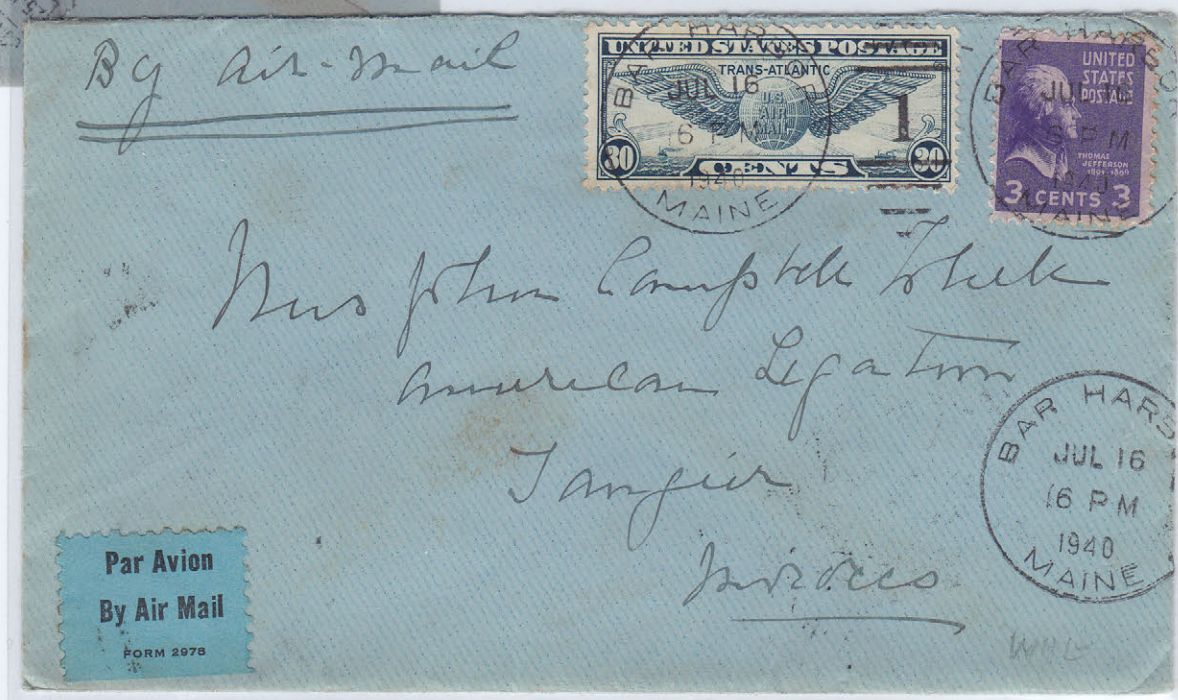 By Air-Mail
UNITED STATES POSTAGE
TRANS-ATLANTIC
U.S.
AIR
MAIL
30 CENTS 30
BAR HARBOR
JUL 16
6 PM
1940
MAINE
1
UNITED
STATES
POSTAGE
THOMAS
JEFFERSON
1801-1809
3 CENTS 3
BAR HARBOR
JUL 16
6 PM
1940
MAINE
Mrs John Campbell White
American Legation
Tangier
Morocco
BAR HARB
JUL 16
6 PM
1940
MAINE
Par Avion
By Air Mail
FORM 2978